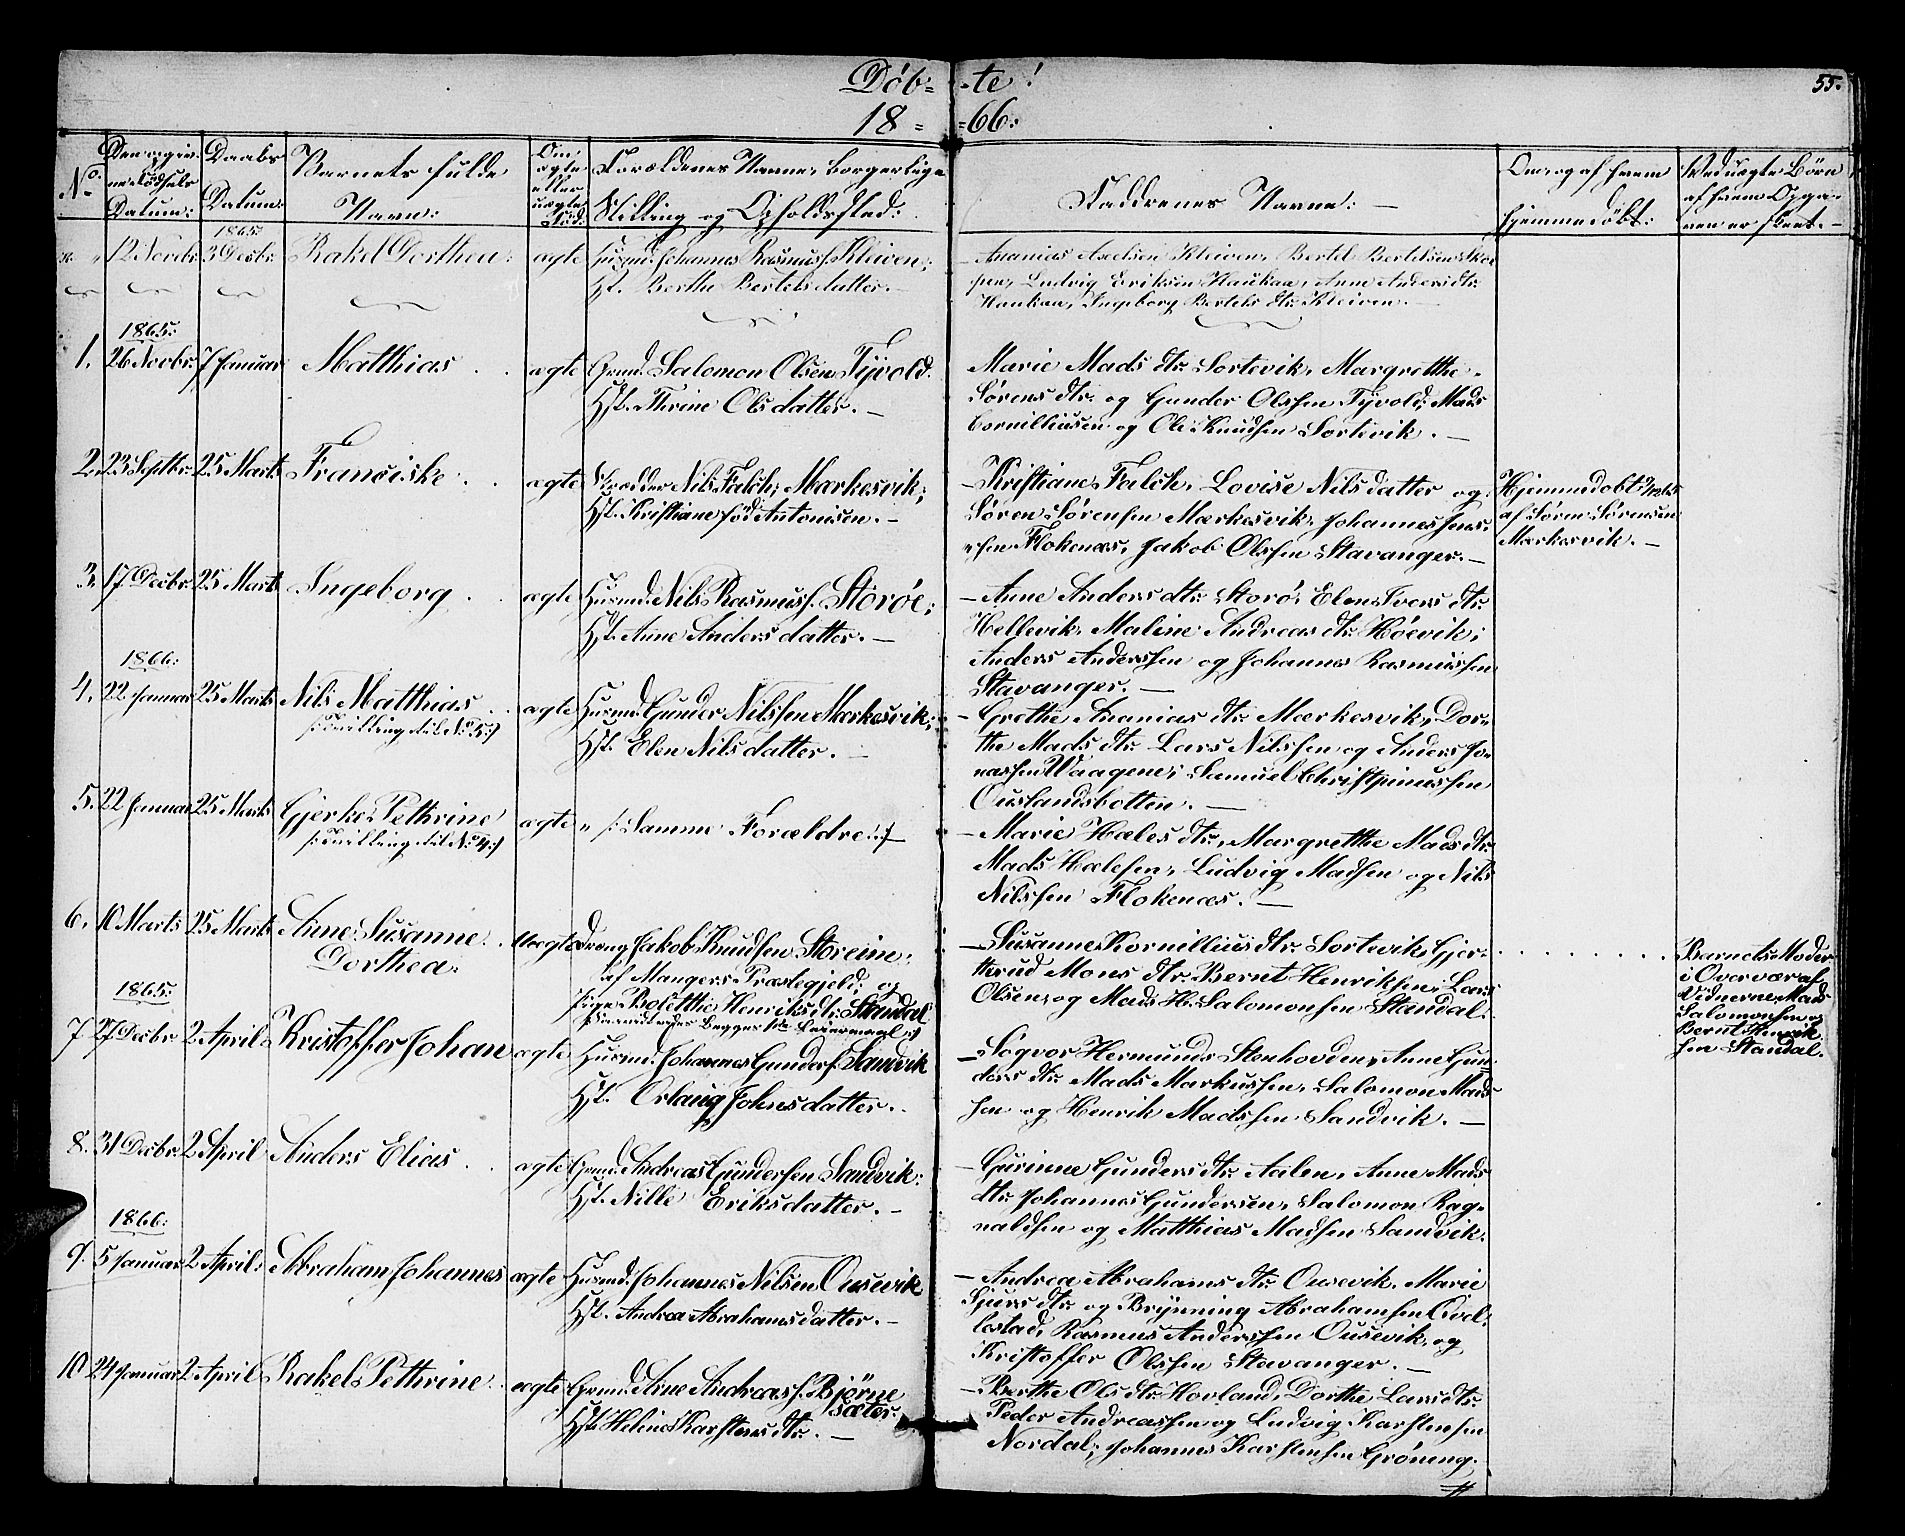 Døb- -te!
55.
18- -66:
No.
Den angiv-
ne Fødsels
Datum:
Daabs
Datum:
Barnets fulde
Navn:
Om
ægte
eller
uægte
fød:
Forældrenes Navne, borgerlige
Stilling og Opholdsted:
Faddrenes Navne: —
Om, og af hvem
hjemmedøbt:
Ved uægte Børn
af hvem Opga-
ven er skeet. —
1865.
12 Novbr. 3 Decbr. Rakel Dorthea: ægte Husmd. Johannes Rasmuss. Kleiven;
Hst. Berthe Bertels datter. —
Ananias Axelsen Kleiven, Bertel Bertelsen Sko-
pen, Ludvig Eriksen Haukaa, Anne Anders dtr.
Haukaa, Ingeborg Bertels dtr. Kleiven. —
1865:
1. 26 Novbr. 7 Januar Matthias . . ægte Grmd. Salomon Olsen Tyvold.
Hst. Thrine Olsdatter. —
Marie Mads dtr. Sortevik, Margrethe
Sørens dtr. og Gunder Olssen Tyvold; Mads
Cornilliussen og Ole Knudsen Sortevik. —
2. 23 Septbr. 25 Marts Franciske . . ægte Skrædder Nils Falch, Markesvik;
Hst. Kristiane fød Antonisen. —
— Kristiane Falch, Lovise Nilsdatter og
Søren Sørensen Mærkesvik, Johannes Jens-
sen Flokenæs, Jakob Olssen Stavanger. —
Hjemmedøbt
af Søren Sørensen
Mærkesvik. —
3. 17 Decbr. 25 Marts Ingeborg . . ægte Husmd. Nils Rasmuss. Storøe;
Hst. Anne Anders datter. —
— Anne Anders dtr. Storø, Elen Ivers dtr.
Hellevik, Maline Andreas dtr. Høevik;
Anders Anderssen og Johannes Rasmussen
Stavanger. —
1866:
4. 22 Januar 25 Marts Nils Matthias . . ægte Husmd. Gunder Nilssen Mærkesvik;
/:Tvilling til No 5:/
Hst. Elen Nilsdatter. —
— Grethe Ananias dtr. Mærkesvik, Dor-
the Mads dtr. Lars Nilssen og Anders Jo-
nassen Waagene; Samuel Christpinussen
Ouslandsbotten. —
5. 22 Januar 25 Marts Gjerke Pethrine ægte „ /: Samme Forældre :/
/:Tvilling til No 4:/
— Marie Hæles dtr., Margrethe Mads dtr.
Mads Hælesen, Ludvig Madsen og Nils
Nilssen Flokenæs. —
6. 10 Marts 25 Marts Anne Susanne Uægte Dreng Jakob Knudsen Storeine,
Dorthea.
af Mangers Præstegjeld; og
Pige Bolethe Henriks dtr. Standal
Begges 1ste Leiermaal :/
— Susanne Kornillius dtr. Sortevik, Gjer-
therud Mons dtr. Bernt Henriksen, Lars
Olsen, og Mads H. Salomonsen Standal.
Barnets Moder
i Overvær af
Vidnerne Mads
Salomonsen og
Bernt Henrik-
sen Standal.
1865:
7 27 Decbr. 2 April: Kristoffer Johan ægte Husmd. Johannes Gunders. Sandvik
Hst. Orlaug Johnsdatter. .
— Søgvor Hermunds Stenhovden, Anne Gun-
ders dtr. Mads Markussen, Salomon Mads-
sen og Henrik Madssen Sandvik. —
8. 31 Decbr. 2 April Anders Elias . . ægte Grmd. Andreas Gundersen Sandvik:
Hst. Nille Eriksdatter. —
— Gurinne Gunders dtr. Aalen, Anne Mads
dtr. Johannes Gundersen, Salomon Rag-
naldsen og Matthias Madsen Sandvik.
1866:
9. 5 Januar 2 April: Abraham Johannes ægte Husmd. Johannes Nilsen Ousevik
Hst. Andrea Abrahamsdatter. —
— Andrea Abrahams dtr. Ousevik, Marie
Sjurs dtr. og Brynning Abrahamsen Qvel-
lestad, Rasmus Anderssen Ousevik, og
Kristoffer Olssen Stavanger. —
10 24 Januar 2 April Rakel Pethrine . ægte Grmd. Arne Andreass. Bjørne
sæter.
Hst. Heline Karstens dtr. —
— Berthe Ols dtr. Hovland, Dorthe Lars dtr.
Peder Andreassen og Ludvig Karstensen
Nordal; Johannes Karstensen Grøneng.